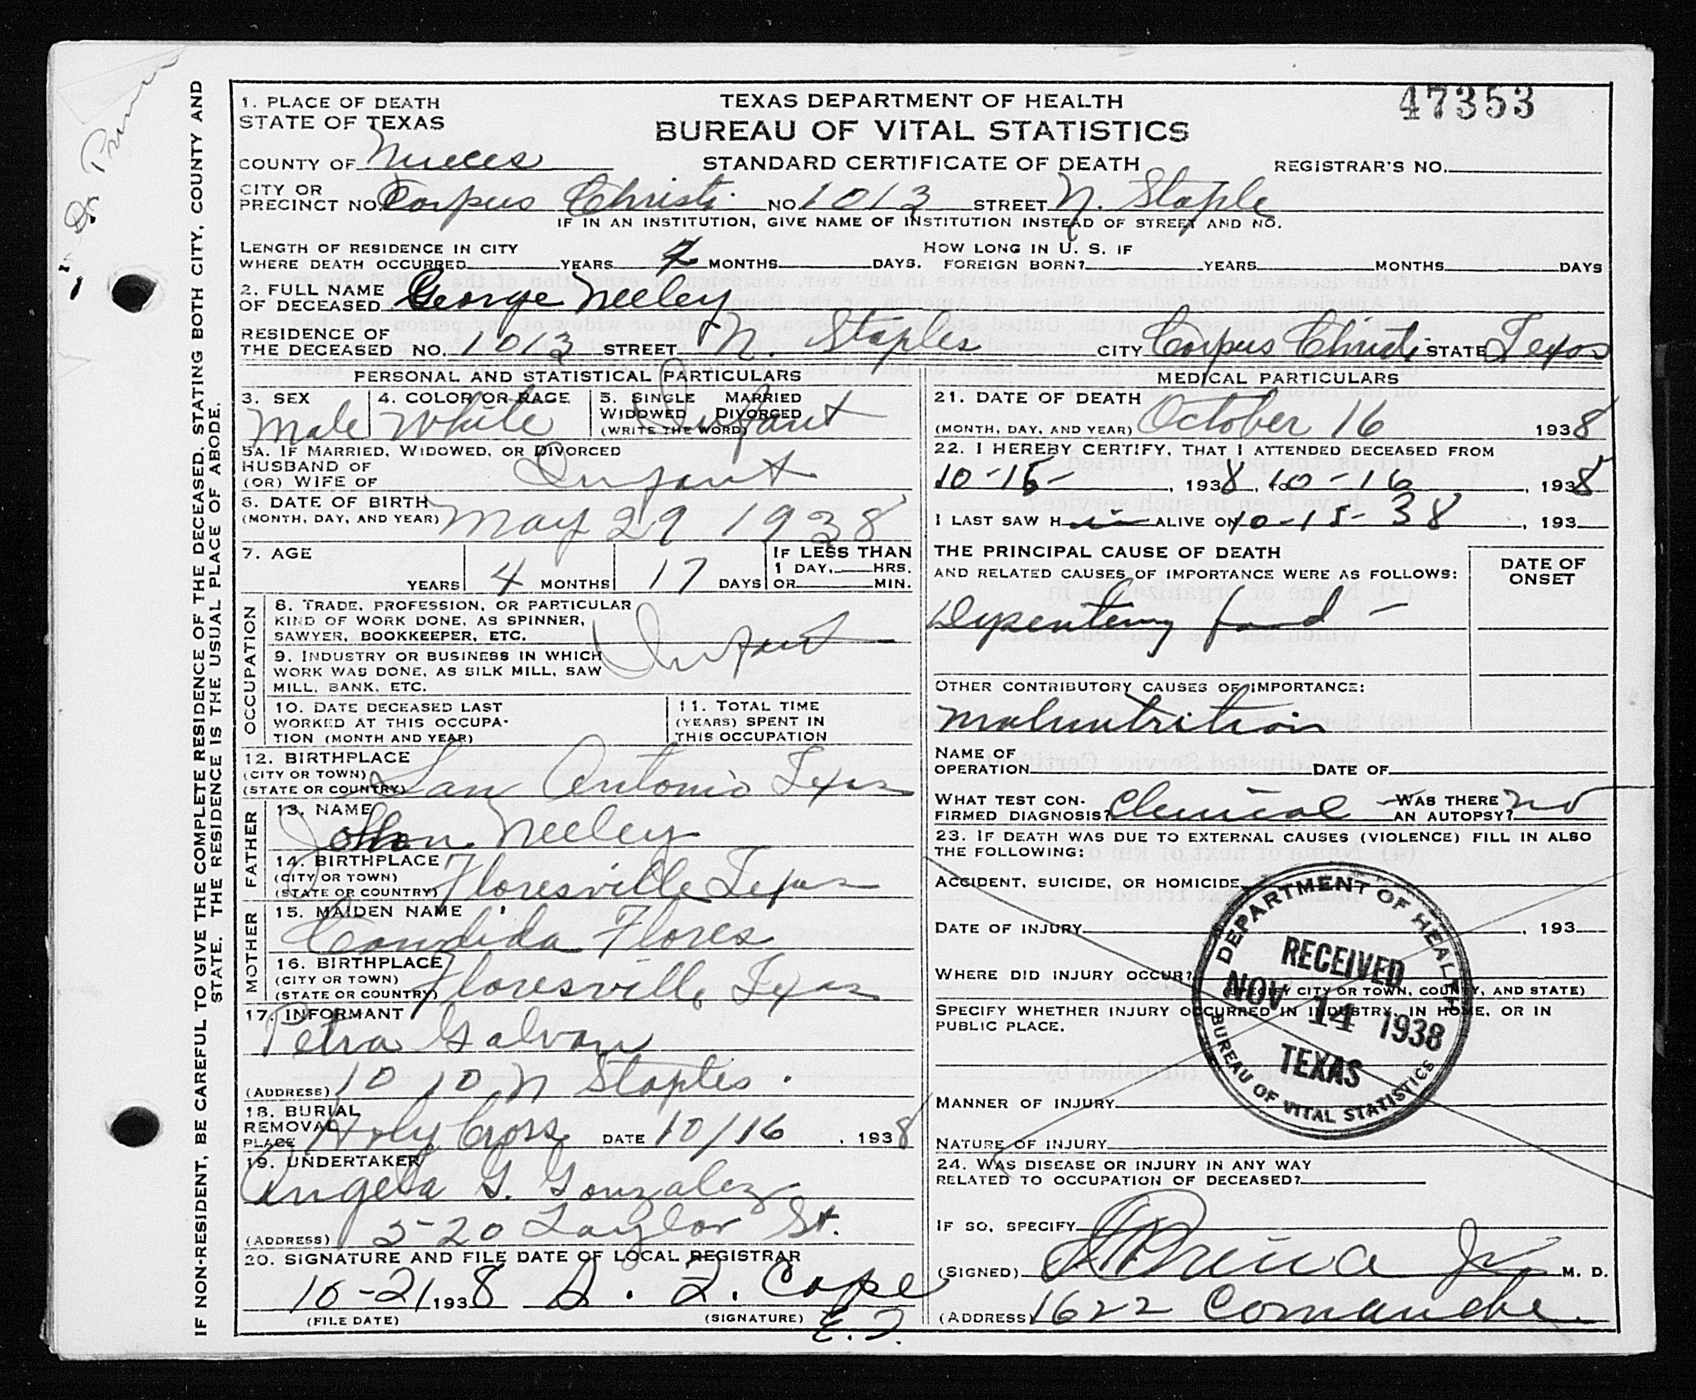 47353
1. PLACE OF DEATH
STATE OF TEXAS
TEXAS DEPARTMENT OF HEALTH
BUREAU OF VITAL STATISTICS
STANDARD CERTIFICATE OF DEATH
COUNTY OF Nueces
REGISTRAR'S NO.
CITY OR PRECINCT NO. Corpus Christi NO. 1013 STREET N. Staple
IF IN AN INSTITUTION, GIVE NAME OF INSTITUTION INSTEAD OF STREET AND NO.
LENGTH OF RESIDENCE IN CITY HOW LONG IN U. S. IF
WHERE DEATH OCCURRED YEARS MONTHS DAYS. FOREIGN BORN? YEARS MONTHS DAYS
2. FULL NAME
OF DECEASED George Neeley
RESIDENCE OF
THE DECEASED NO. 1013 STREET N. Staples CITY Corpus Christi STATE Texas
PERSONAL AND STATISTICAL PARTICULARS
3. SEX 4. COLOR OR RACE 5. SINGLE MARRIED
WIDOWED DIVORCED
(WRITE THE WORD)
Male White Infant
5A. IF MARRIED, WIDOWED, OR DIVORCED
HUSBAND OF
(OR) WIFE OF Infant
6. DATE OF BIRTH
(MONTH, DAY, AND YEAR) May 29 1938
7. AGE IF LESS THAN
1 DAY, HRS.
YEARS 4 MONTHS 17 DAYS OR MIN.
OCCUPATION
8. TRADE, PROFESSION, OR PARTICULAR
KIND OF WORK DONE, AS SPINNER,
SAWYER, BOOKKEEPER, ETC. Infant
9. INDUSTRY OR BUSINESS IN WHICH
WORK WAS DONE, AS SILK MILL, SAW
MILL, BANK, ETC. Infant
10. DATE DECEASED LAST
WORKED AT THIS OCCUPA-
TION (MONTH AND YEAR)
11. TOTAL TIME
(YEARS) SPENT IN
THIS OCCUPATION
12. BIRTHPLACE
(CITY OR TOWN)
(STATE OR COUNTRY) San Antonio Texas
FATHER
13. NAME
John Neeley
14. BIRTHPLACE
(CITY OR TOWN)
(STATE OR COUNTRY) Floresville Texas
MOTHER
15. MAIDEN NAME
Candida Flores
16. BIRTHPLACE
(CITY OR TOWN)
(STATE OR COUNTRY) Floresville Texas
17. INFORMANT
Petra Galvan
(ADDRESS) 1010 N Staples.
18. BURIAL
REMOVAL
PLACE Holy Cross DATE 10/16, 1938
19. UNDERTAKER
Angela G. Gonzalez
(ADDRESS) 520 Taylor St.
20. SIGNATURE AND FILE DATE OF LOCAL REGISTRAR
10-21 1938 Cope
(FILE DATE) (SIGNATURE)
MEDICAL PARTICULARS
21. DATE OF DEATH
(MONTH, DAY, AND YEAR) October 16 1938
22. I HEREBY CERTIFY, THAT I ATTENDED DECEASED FROM
10-15-, 1938, to 10-16, 1938
I LAST SAW H im ALIVE ON 10-15-38, 193
THE PRINCIPAL CAUSE OF DEATH
AND RELATED CAUSES OF IMPORTANCE WERE AS FOLLOWS:
DATE OF
ONSET
Dysentery food -
OTHER CONTRIBUTORY CAUSES OF IMPORTANCE:
Malnutrition
NAME OF
OPERATION DATE OF
WHAT TEST CON-
FIRMED DIAGNOSIS? Clinical WAS THERE
AN AUTOPSY? no
23. IF DEATH WAS DUE TO EXTERNAL CAUSES (VIOLENCE) FILL IN ALSO
THE FOLLOWING:
ACCIDENT, SUICIDE, OR HOMICIDE
DATE OF INJURY , 193
WHERE DID INJURY OCCUR?
(SPECIFY CITY OR TOWN, COUNTY, AND STATE)
SPECIFY WHETHER INJURY OCCURRED IN INDUSTRY, IN HOME, OR IN
PUBLIC PLACE.
MANNER OF INJURY
NATURE OF INJURY
24. WAS DISEASE OR INJURY IN ANY WAY
RELATED TO OCCUPATION OF DECEASED?
IF SO, SPECIFY
(SIGNED) Jr M. D.
(ADDRESS) 1622 Comanche
DEPARTMENT OF HEALTH
RECEIVED
NOV 14 1938
TEXAS
BUREAU OF VITAL STATISTICS
IF NON-RESIDENT, BE CAREFUL TO GIVE THE COMPLETE RESIDENCE OF THE DECEASED, STATING BOTH CITY, COUNTY AND
STATE. THE RESIDENCE IS THE USUAL PLACE OF ABODE.